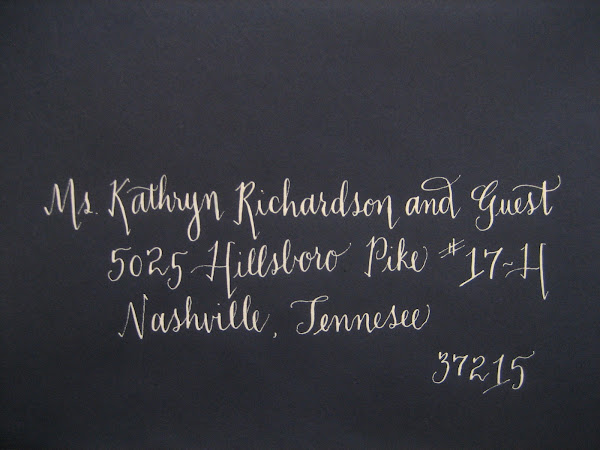 Ms. Kathryn Richardson and Guest
5025 Hillsboro Pike #17~H
Nashville, Tennesee
37215